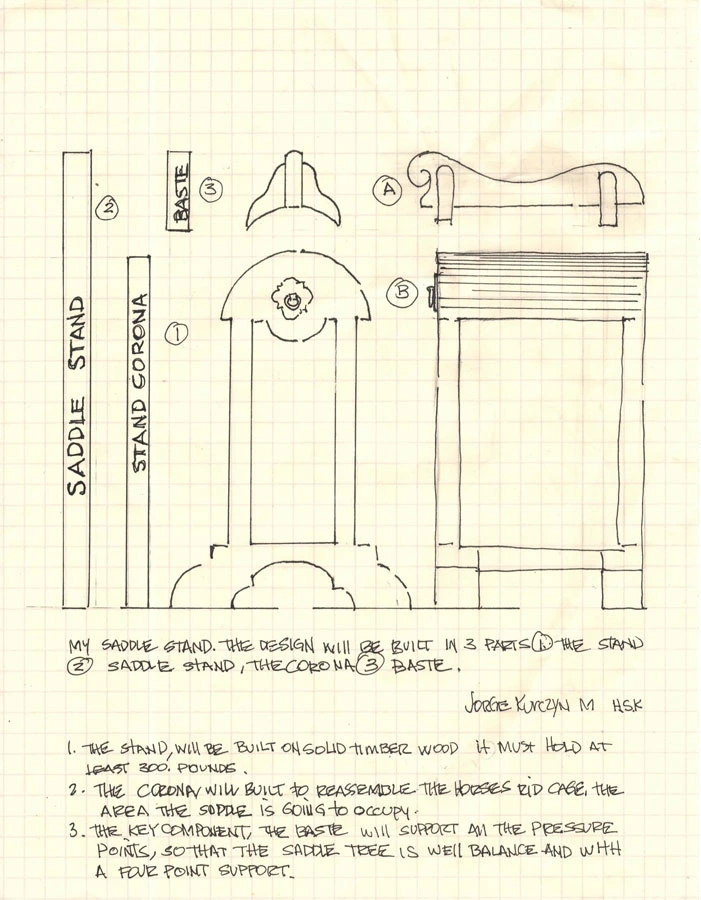 SADDLE STAND
2
STAND CORONA
1
BASTE
3
A
B
MY SADDLE STAND. THE DESIGN WILL BE BUILT IN 3 PARTS 1. THE STAND
2 SADDLE STAND, THE CORONA 3 BASTE.
JORGE KURCZYN M H.S.K
1. THE STAND, WILL BE BUILT ON SOLID TIMBER WOOD it MUST HOLD AT
LEAST 300. POUNDS.
2. THE CORONA, WILL BUILT to REASSEMBLE THE HORSES RID CAGE, THE
AREA THE SADDLE is GOING to OCCUPY.
3. THE KEY COMPONENT, THE BASTE WILL SUPPORT All THE PRESSURE
POINTS, SO THAT THE SADDLE TREE IS WEll BALANCE AND WITH
A FOUR POINT SUPPORT.